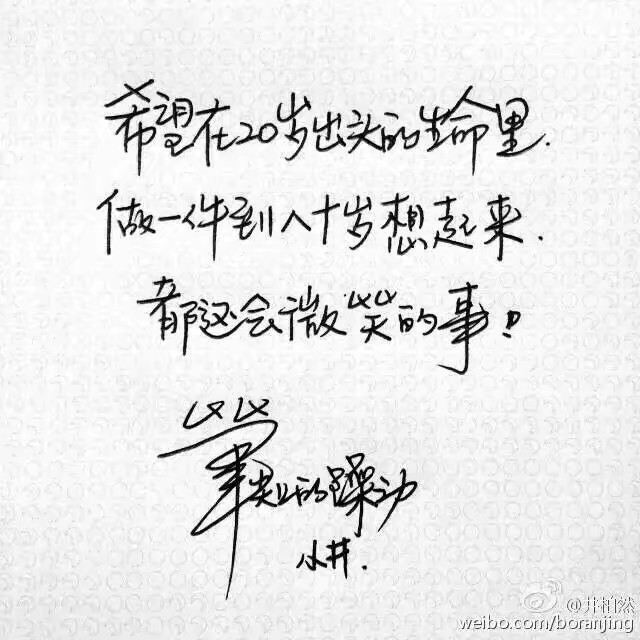 希望在20岁出头的生命里.
做一件到八十岁想起来.
都还会微笑的事!
笔尖上的躁动
小井.
@井柏然
weibo.com/boranjing